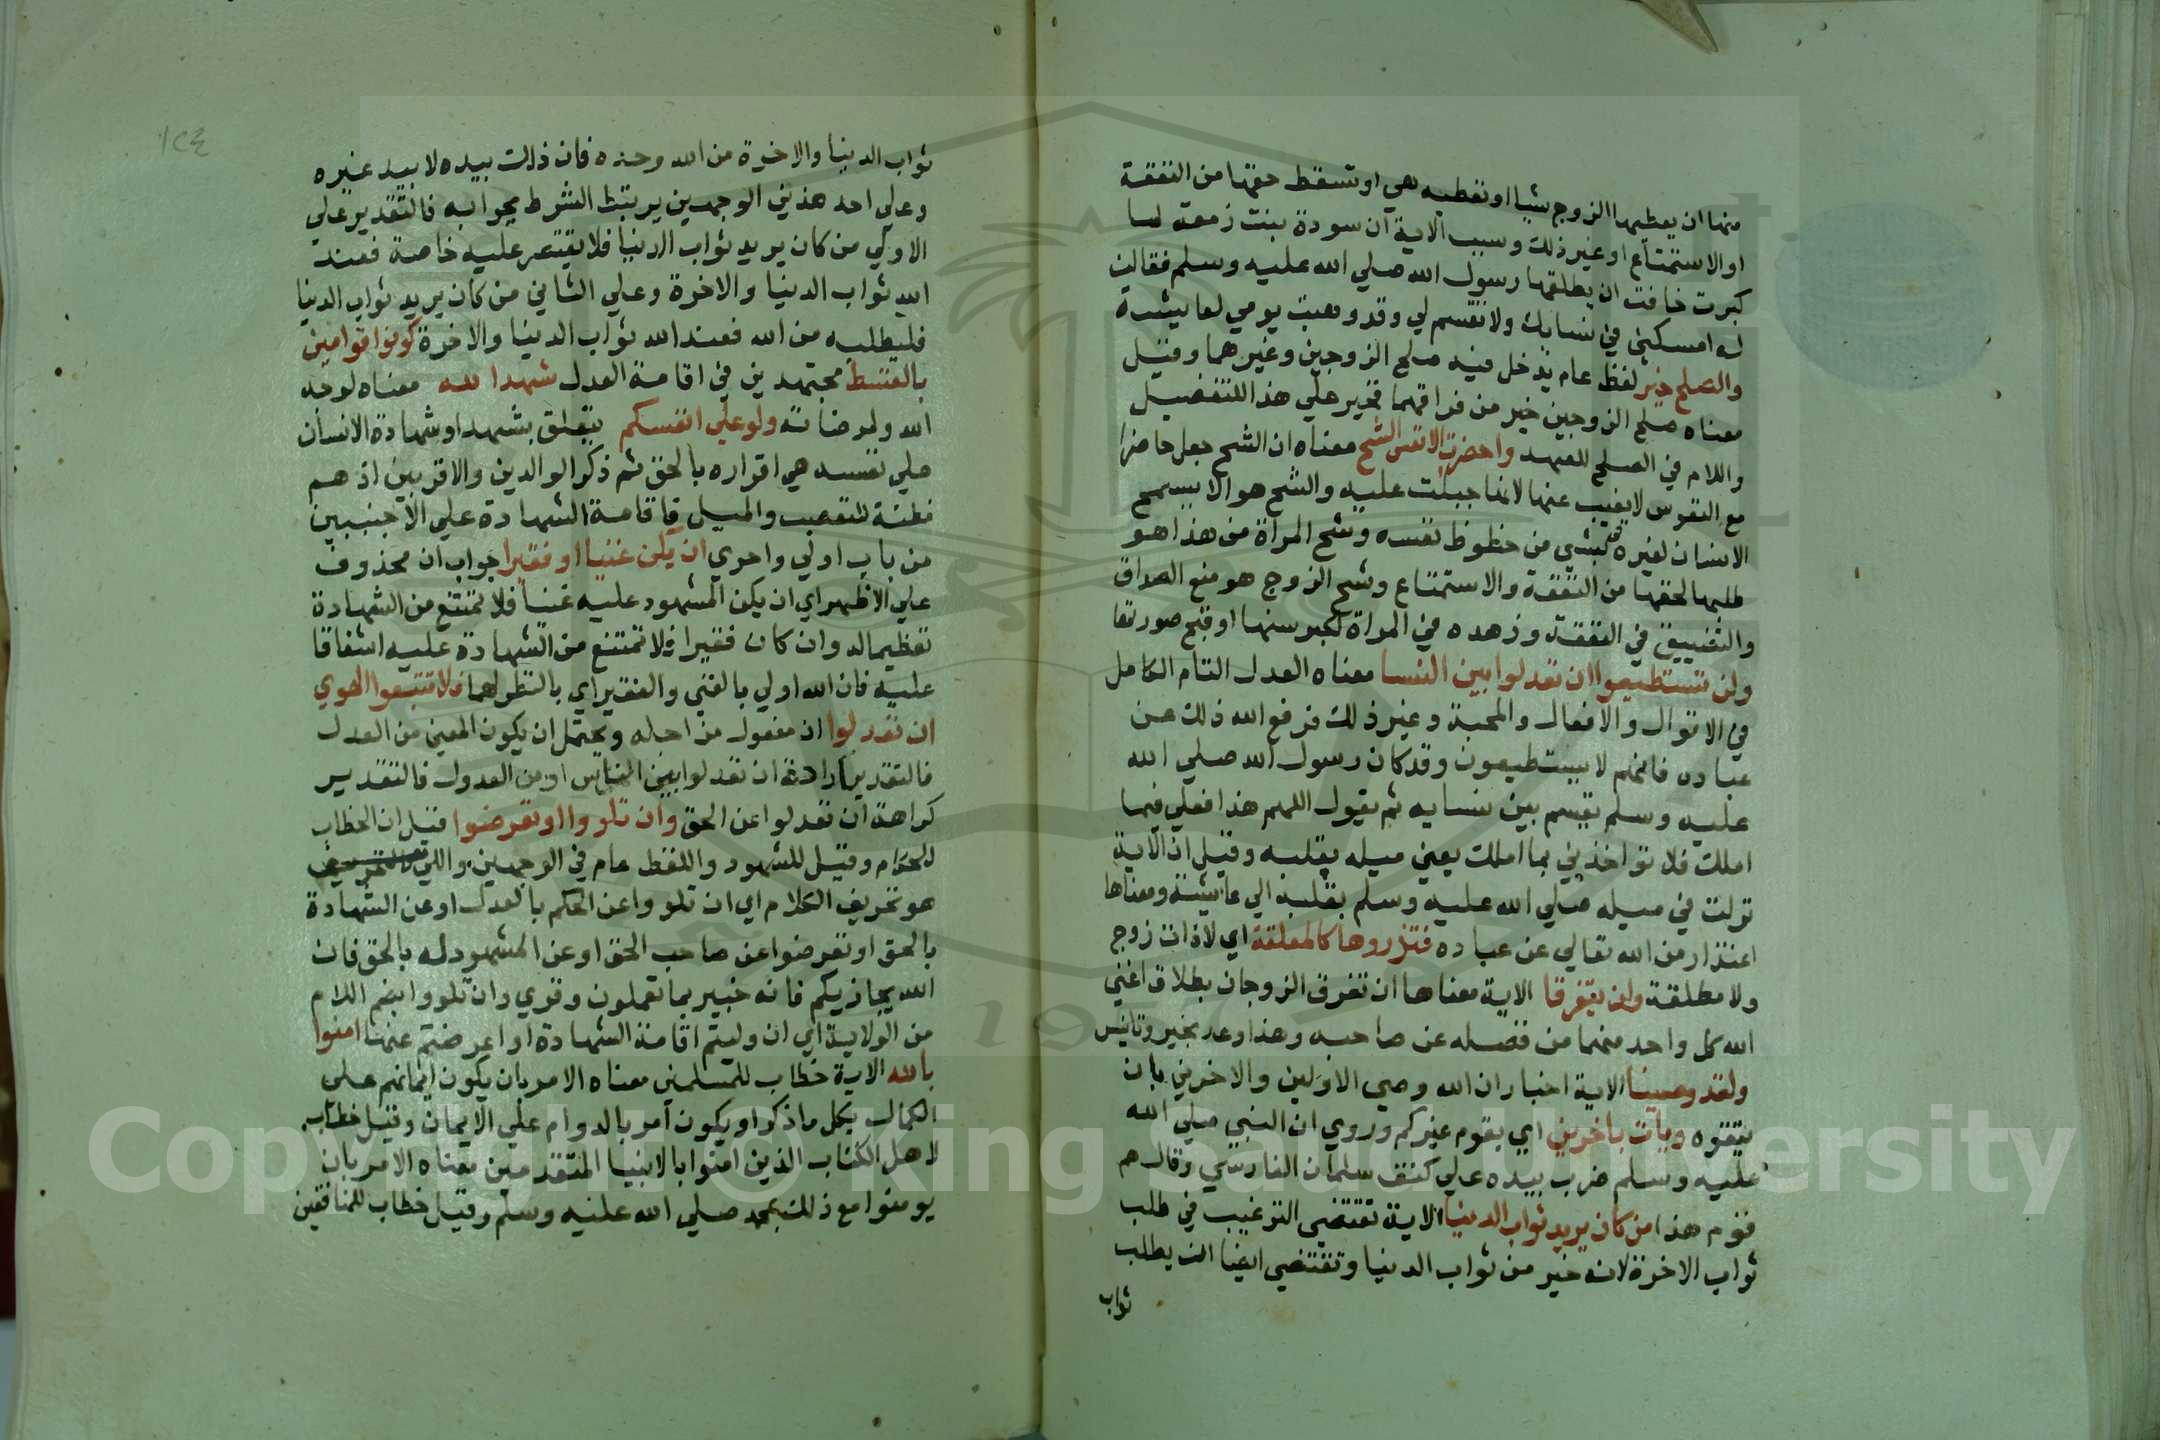 منها ان يعطيها الزوج شيا او تعطيه هي او تسقط حقها من النفقة
او الاستمتاع او غير ذلك وسبب الاية ان سودة بنت زمعة لما
كبرت خافت ان يطلقها رسول الله صلي الله عليه وسلم فقالت
له امسكني في نسايك ولا تقسم لي وقد وهبت يومي لعايشة
والصلح خير لفظ عام يدخل فيه صلح الزوجين وغيرهما وقيل
معناه صلح الزوجين خير من فراقهما فخير علي هذا للتفضيل
واللام في الصلح للعهد واحضرت الانفس الشح معناه ان الشح جعل حاضرا
مع النفوس لا يغيب عنها لانها جبلت عليه والشح هو الا يسمح
الانسان لغيره بشي من حظوظ نفسه وشح المراة من هذا هو
طلبها لحقها من النفقة والاستمتاع وشح الزوج هو منع الصداق
والتضييق في النفقة وزهده في المراة لكبر سنها او قبح صورتها
ولن تستطيعوا ان تعدلوا بين النسا معناه العدل التام الكامل
في الاقوال والافعال والمحبة وغير ذلك فرفع الله ذلك عن
عباده فانهم لا يستطيعون وقد كان رسول الله صلي الله
عليه وسلم يقسم بين نسايه ثم يقول اللهم هذا فعلي فيما
املك فلا تواخذني بما املك يعني ميله بقلبه وقيل ان الاية
نزلت في ميله صلي الله عليه وسلم بقلبه الي عايشة ومعناها
اعتذار من الله تعالي عن عباده فتذروها كالمعلقة اي لا ذات زوج
ولا مطلقة وان يتفرقا الاية معناها ان تفرق الزوجان بطلاق اغني
الله كل واحد منهما من فضله عن صاحبه وهذا وعد بخير وتانيس
ولقد وصينا الاية اخبار ان الله وصي الاولين والاخرين بان
يتقوه ويات باخرين اي بقوم غيركم وروي ان النبي صلي الله
عليه وسلم ضرب بيده علي كتف سلمان الفارسي وقال هم
قوم هذا من كان يريد ثواب الدنيا الاية تقتضي الترغيب في طلب
ثواب الاخرة لانه خير من ثواب الدنيا وتقتضي ايضا ان يطلب
ثواب
١٢٤
ثواب الدنيا والاخرة من الله وحده فان ذلك بيده لا بيد غيره
وعلي احد هذين الوجهين يرتبط الشرط بجوابه فالتقدير علي
الاولي من كان يريد ثواب الدنيا فلا يقتصر عليه خاصة فعند
الله ثواب الدنيا والاخرة وعلي الثاني من كان يريد ثواب الدنيا
فليطلبه من الله فعند الله ثواب الدنيا والاخرة كونوا قوامين
بالقسط مجتهدين في اقامة العدل شهدا لله معناه لوجه
الله ولمرضاته ولو علي انفسكم يتعلق بشهدا وشهادة الانسان
علي نفسه هي اقراره بالحق ثم ذكر الوالدين والاقربين اذ هم
مظنة للتعصب والميل فاقامة الشهادة علي الاجنبيين
من باب اولي واحري ان يكن غنيا او فقيرا جواب ان محذوف
علي الاظهر اي ان يكن المشهود عليه غنيا فلا تمتنع من الشهادة
تعظيما له وان كان فقيرا فلا تمتنع من الشهادة عليه اشفاقا
عليه فان الله اولي بالغني والفقير اي بالنظر لهما فلا تتبعوا الهوي
ان تعدلوا ان مفعول من اجله ويحتمل ان يكون المعني من العدل
فالتقدير ارادة ان تعدلوا بين الناس او من العدول فالتقدير
كراهة ان تعدلوا عن الحق وان تلووا او تعرضوا قيل ان الخطاب
للحكام وقيل للشهود واللفظ عام في الوجهين واللي
هو تحريف الكلام اي ان تلووا عن الحكم بالعدل او عن الشهادة
بالحق او تعرضوا عن صاحب الحق او عن المشهود له بالحق فان
الله يجازيكم فانه خبير بما تعملون وقري وان تلووا بضم اللام
من الولاية اي ان وليتم اقامة الشهادة او اعرضتم عنها امنوا
بالله الاية خطاب للمسلمين معناه الامر بان يكون ايمانهم علي
الكمال بكل ما ذكر او يكون امر بالدوام علي الايمان وقيل خطاب
لاهل الكتاب الذين امنوا بالانبيا المتقدمين معناه الامر بان
يومنوا مع ذلك بمحمد صلي الله عليه وسلم وقيل خطاب للمنافقين
Copyright © King Saud University
1957